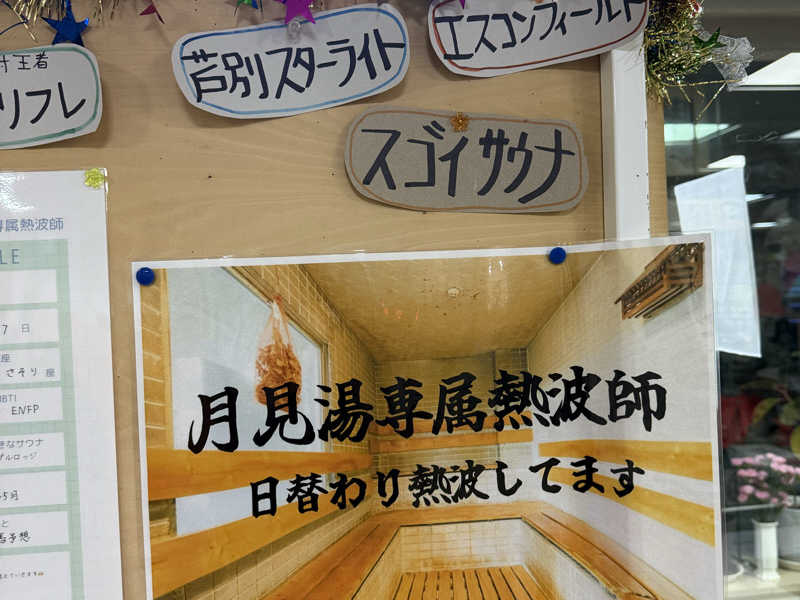 エスコンフィールド
芦別スターライト
王者
リフレ
スゴイサウナ
専属熱波師
LE
7 日
座
さそり 座
MBTI
ENFP
きなサウナ
5月
予想
月見湯専属熱波師
日替わり熱波してます